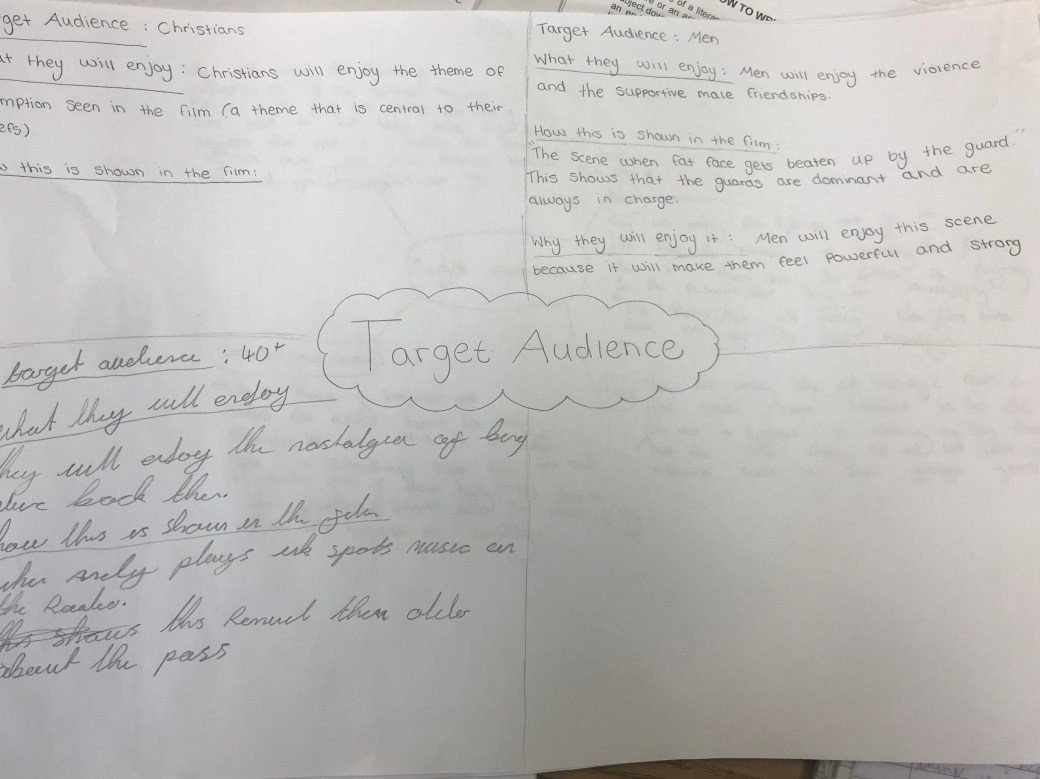 rget Audience : Christians
at they will enjoy : Christians will enjoy the theme of
mption seen in the film (a theme that is central to their
efs)
w this is shown in the film:
Target Audience : Men
What they will enjoy : Men will enjoy the violence
and the supportive male friendships.
How this is shown in the film :
"The scene when fat face gets beaten up by the guard."
This shows that the guards are dominant and are
always in charge.
Why they will enjoy it : Men will enjoy this scene
because it will make them feel powerful and strong
Target Audience
target audience : 40+
what they will enjoy
they will enjoy the nostalgia of being
alive back then.
how this is shown in the film
when andy plays ink spots music on
the Radio.
this shows this Remind them older
about the pass
OW TO WR
of a litera
e or an a
bject dow